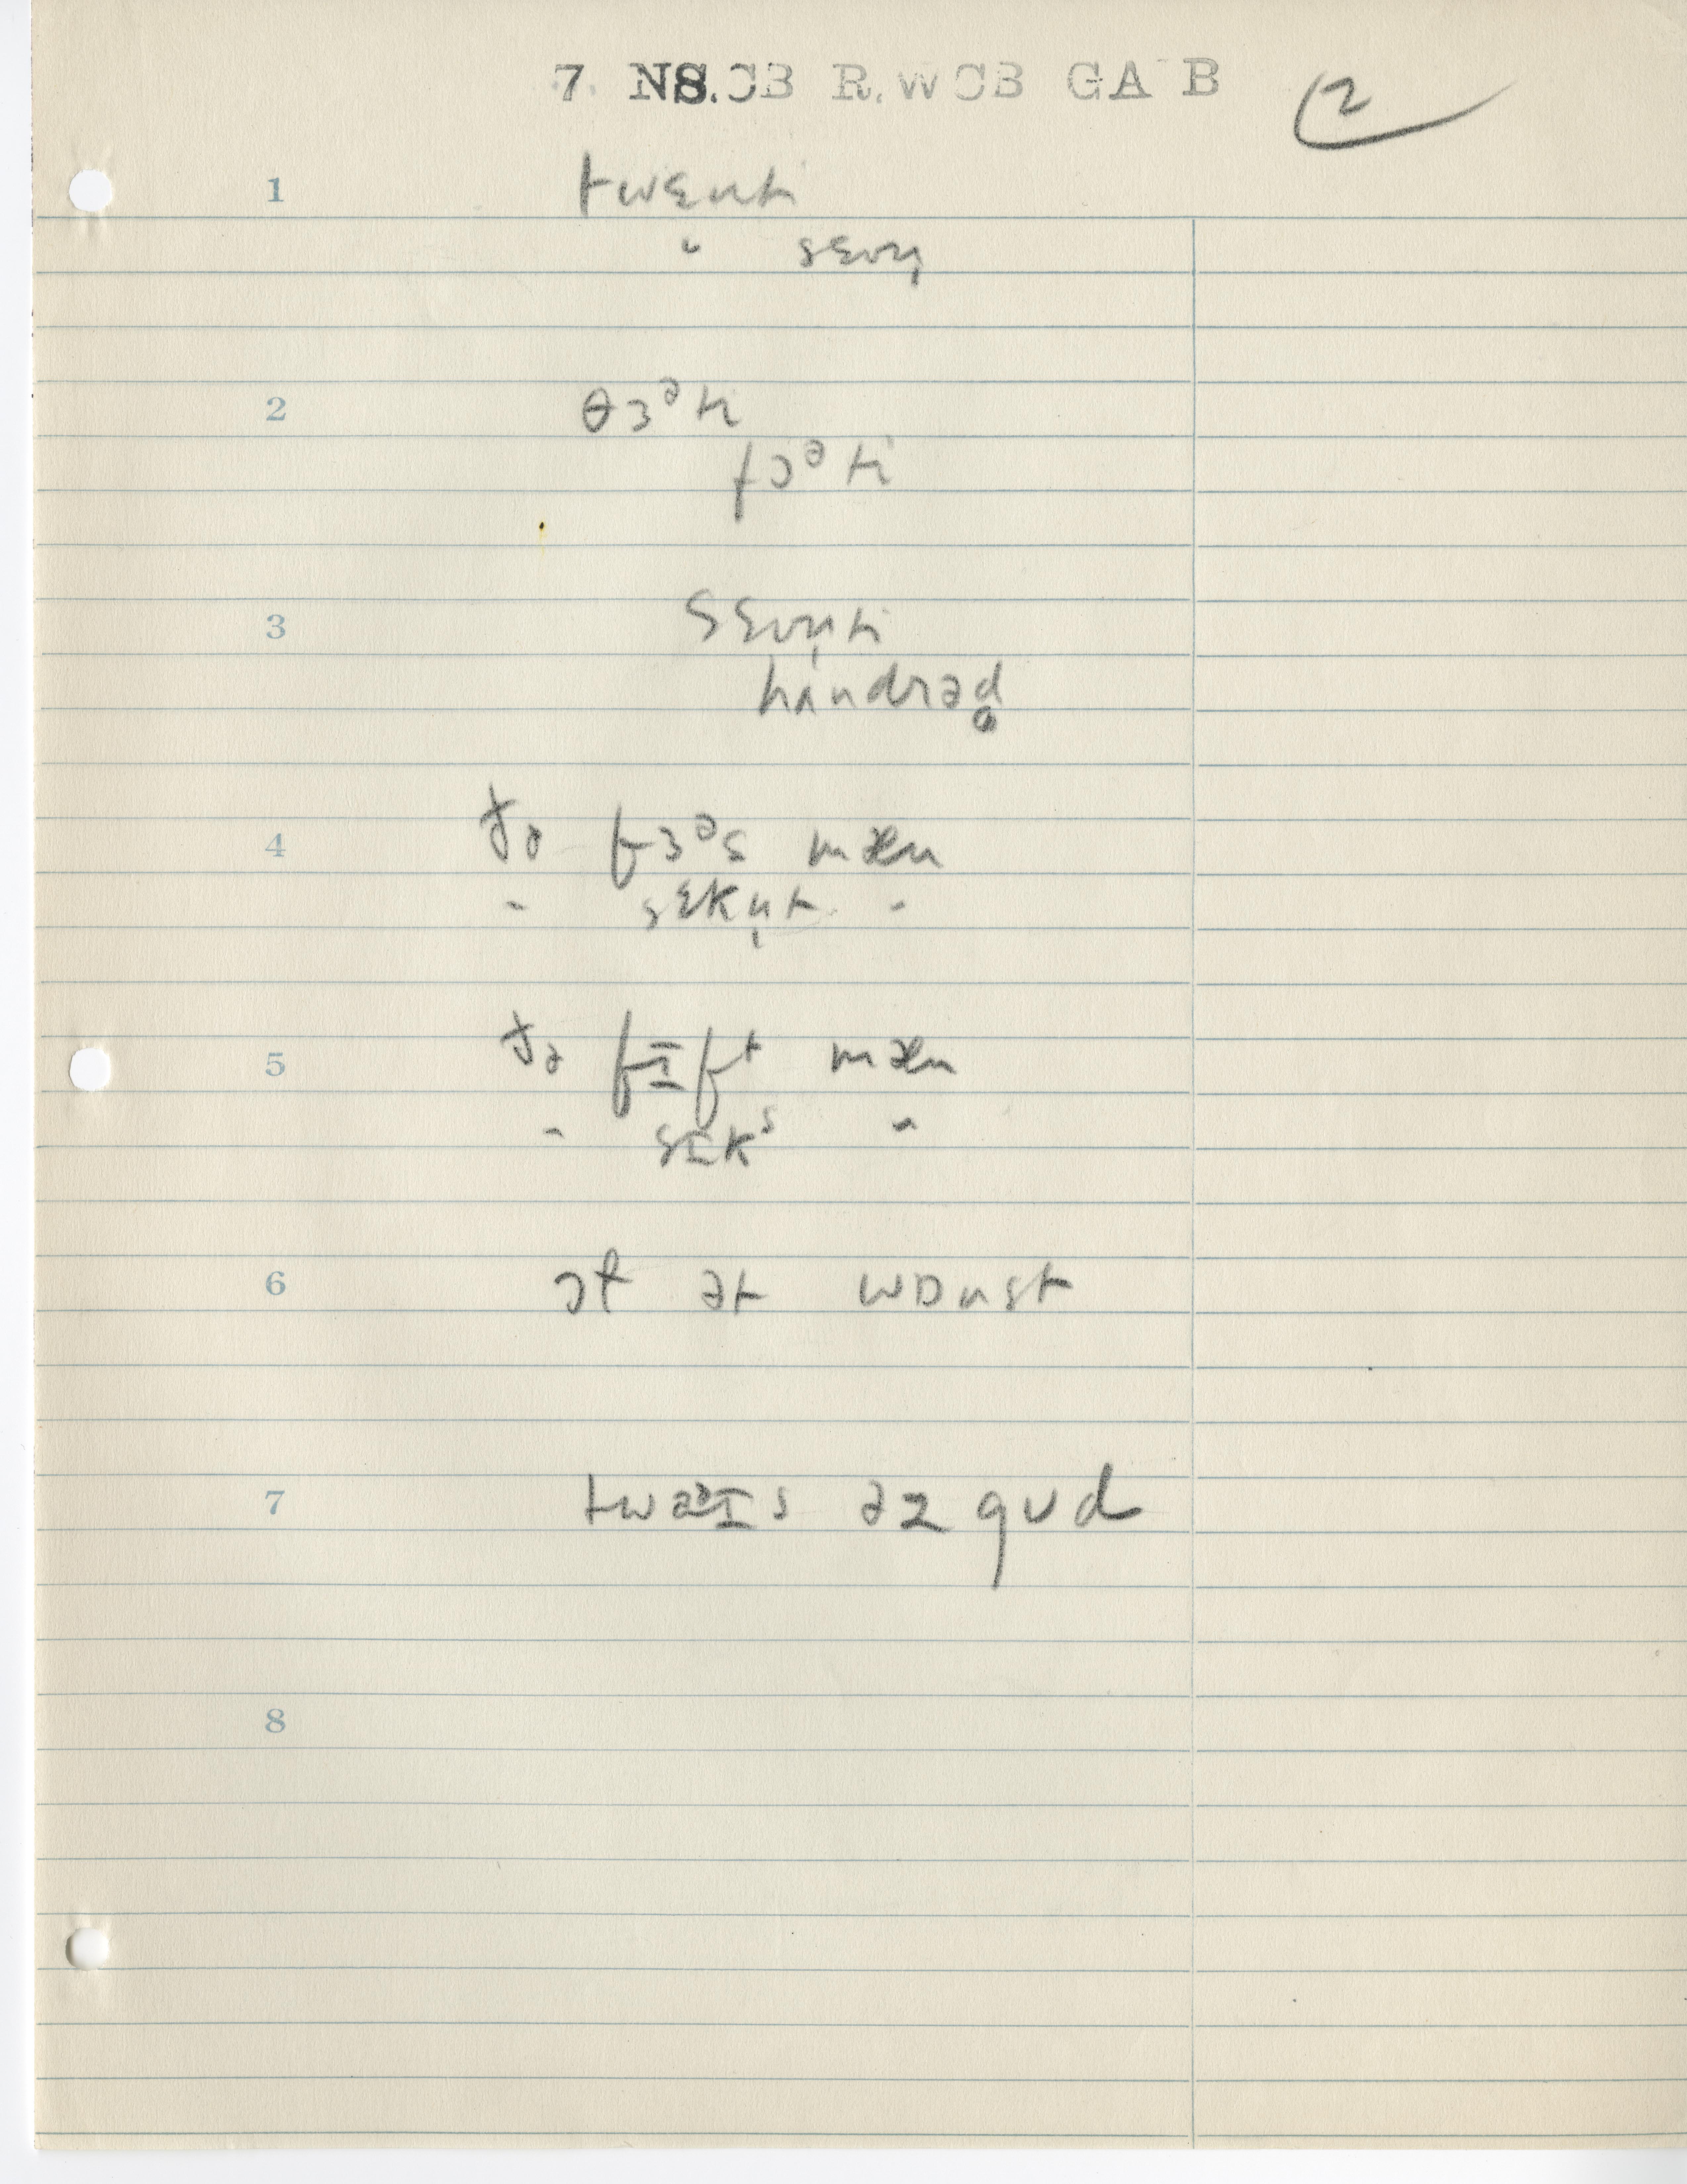 7. NS.CB R.WCB GA B 2
1 twɛnti
" sɛvn̩
2 θɜᵊti
fɔᵊti
3 sɛvn̩ti
hʌndrəd̥
4 ðə fɜᵊs mæn
" sɛkn̩t "
5 ðə fɪft mæn
" sɪks "
6 ɔɫ ət wɒnst
7 əz gud
8